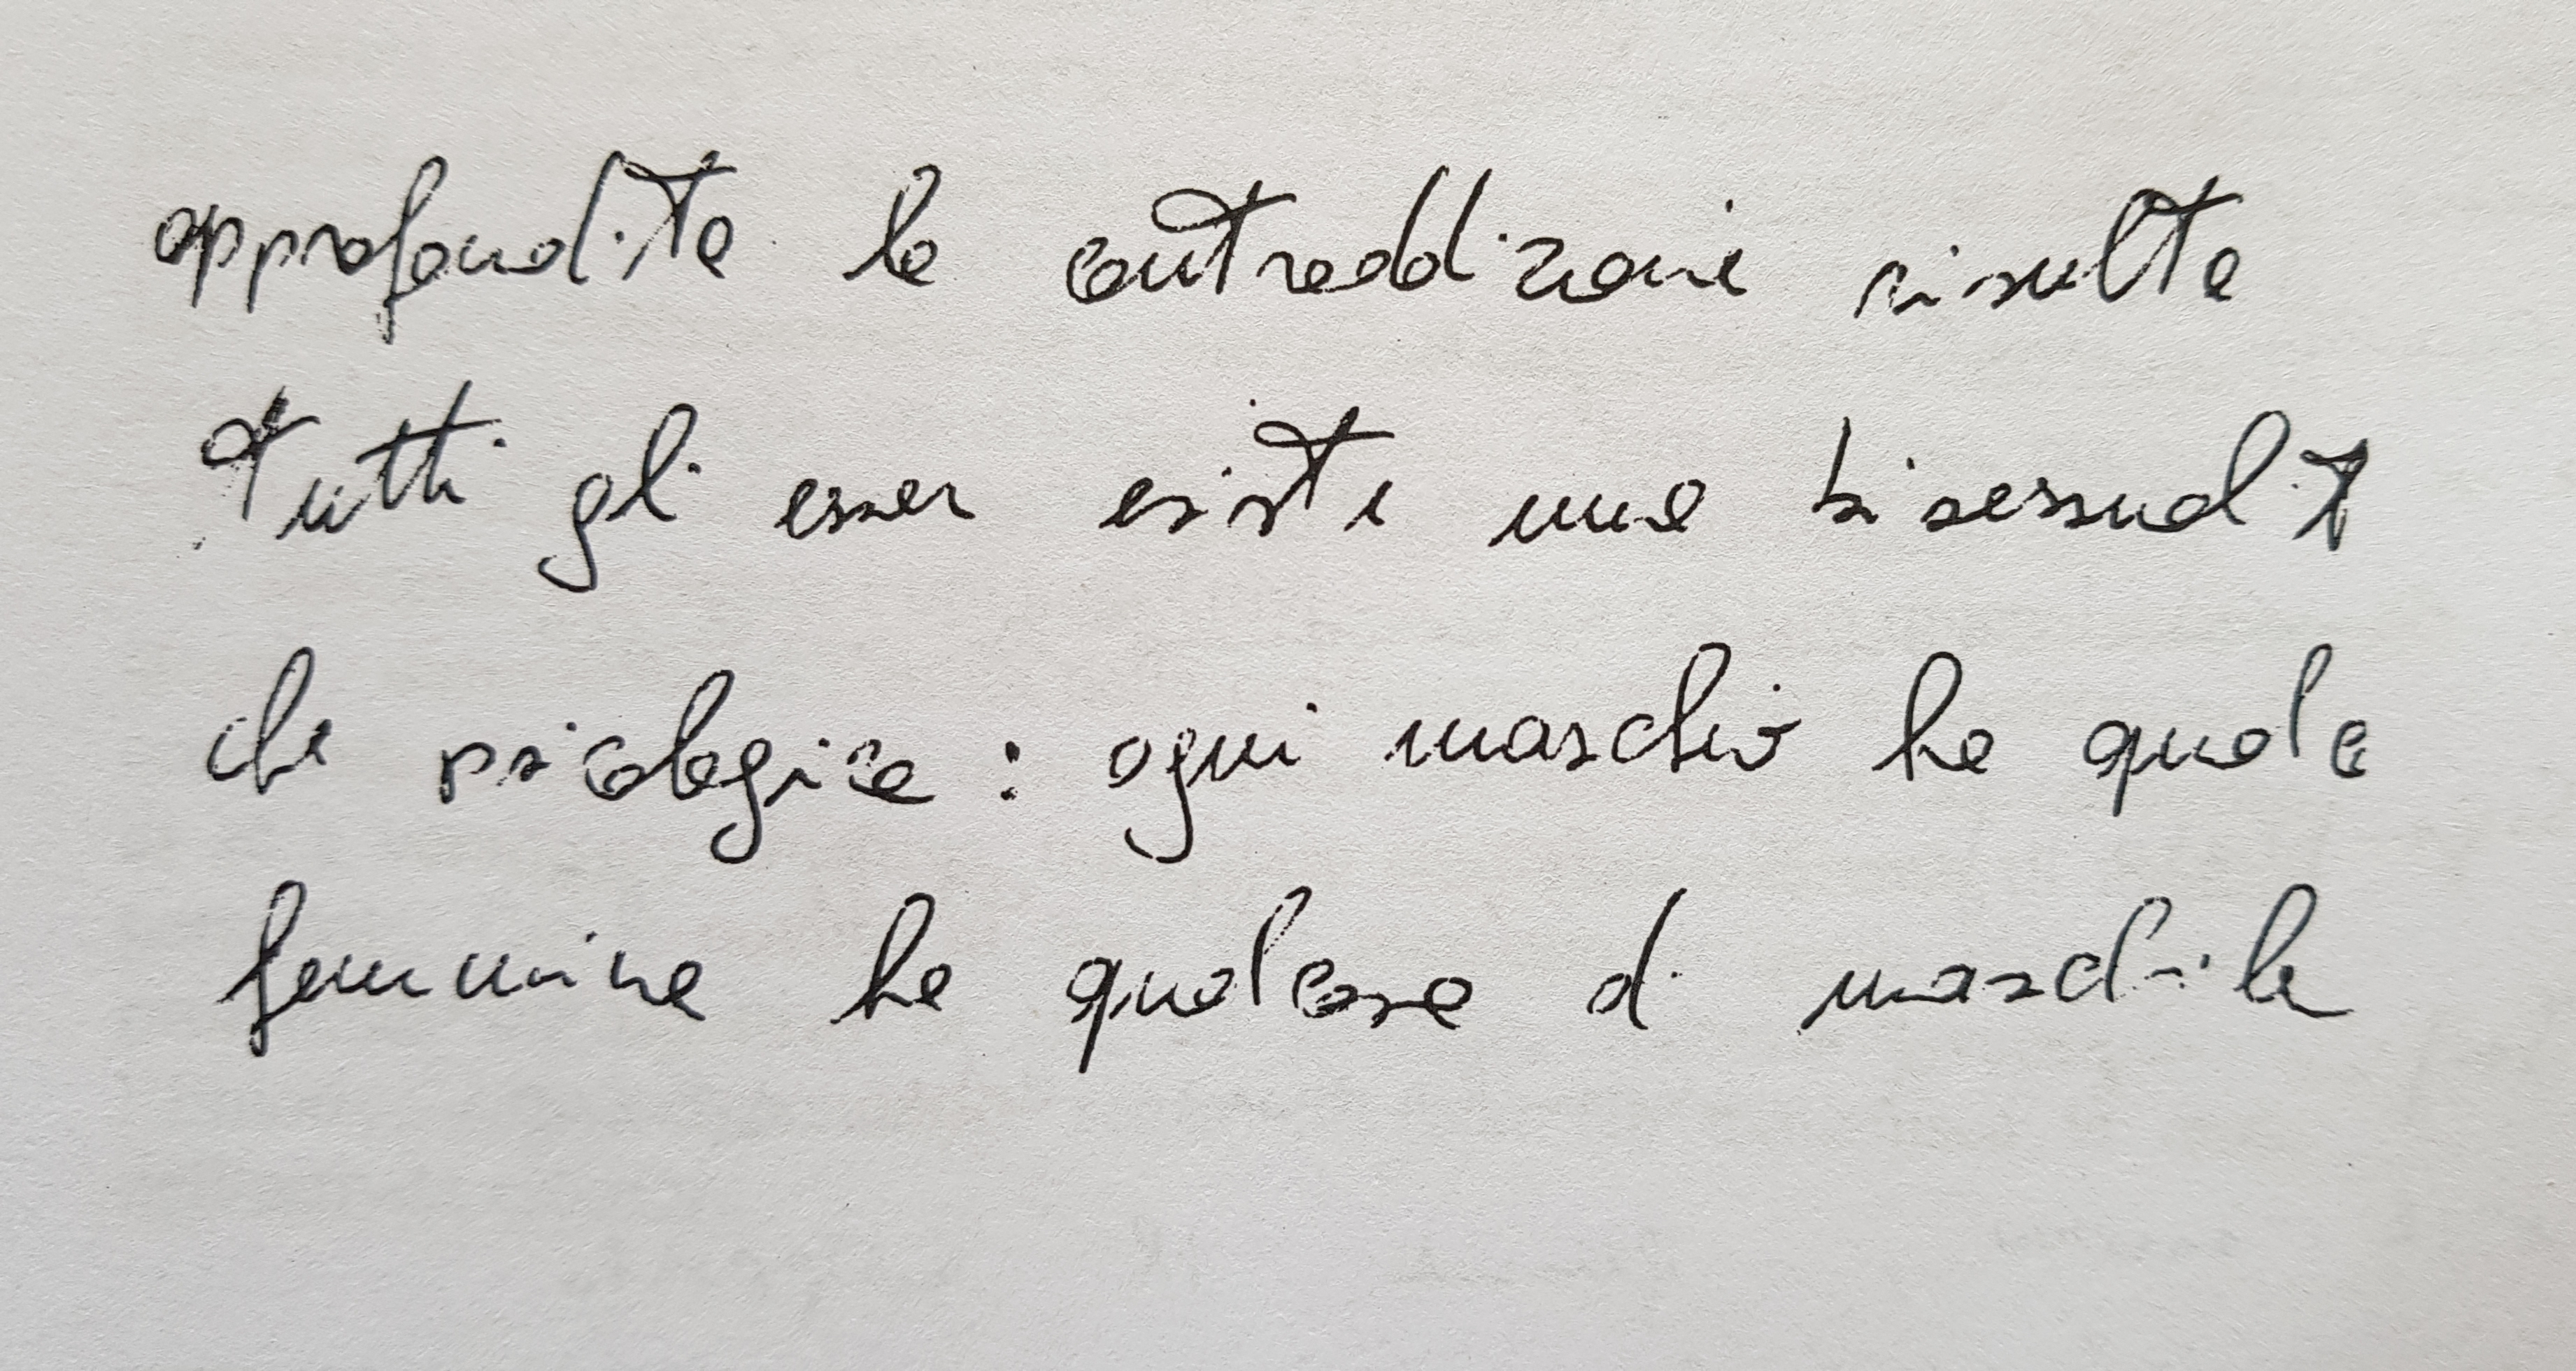 approfondita la contraddizione risulta
tutti gli esseri esiste una bisessualit
che psicologica: ogni maschio ha qualc
femmina ha qualcosa di maschile